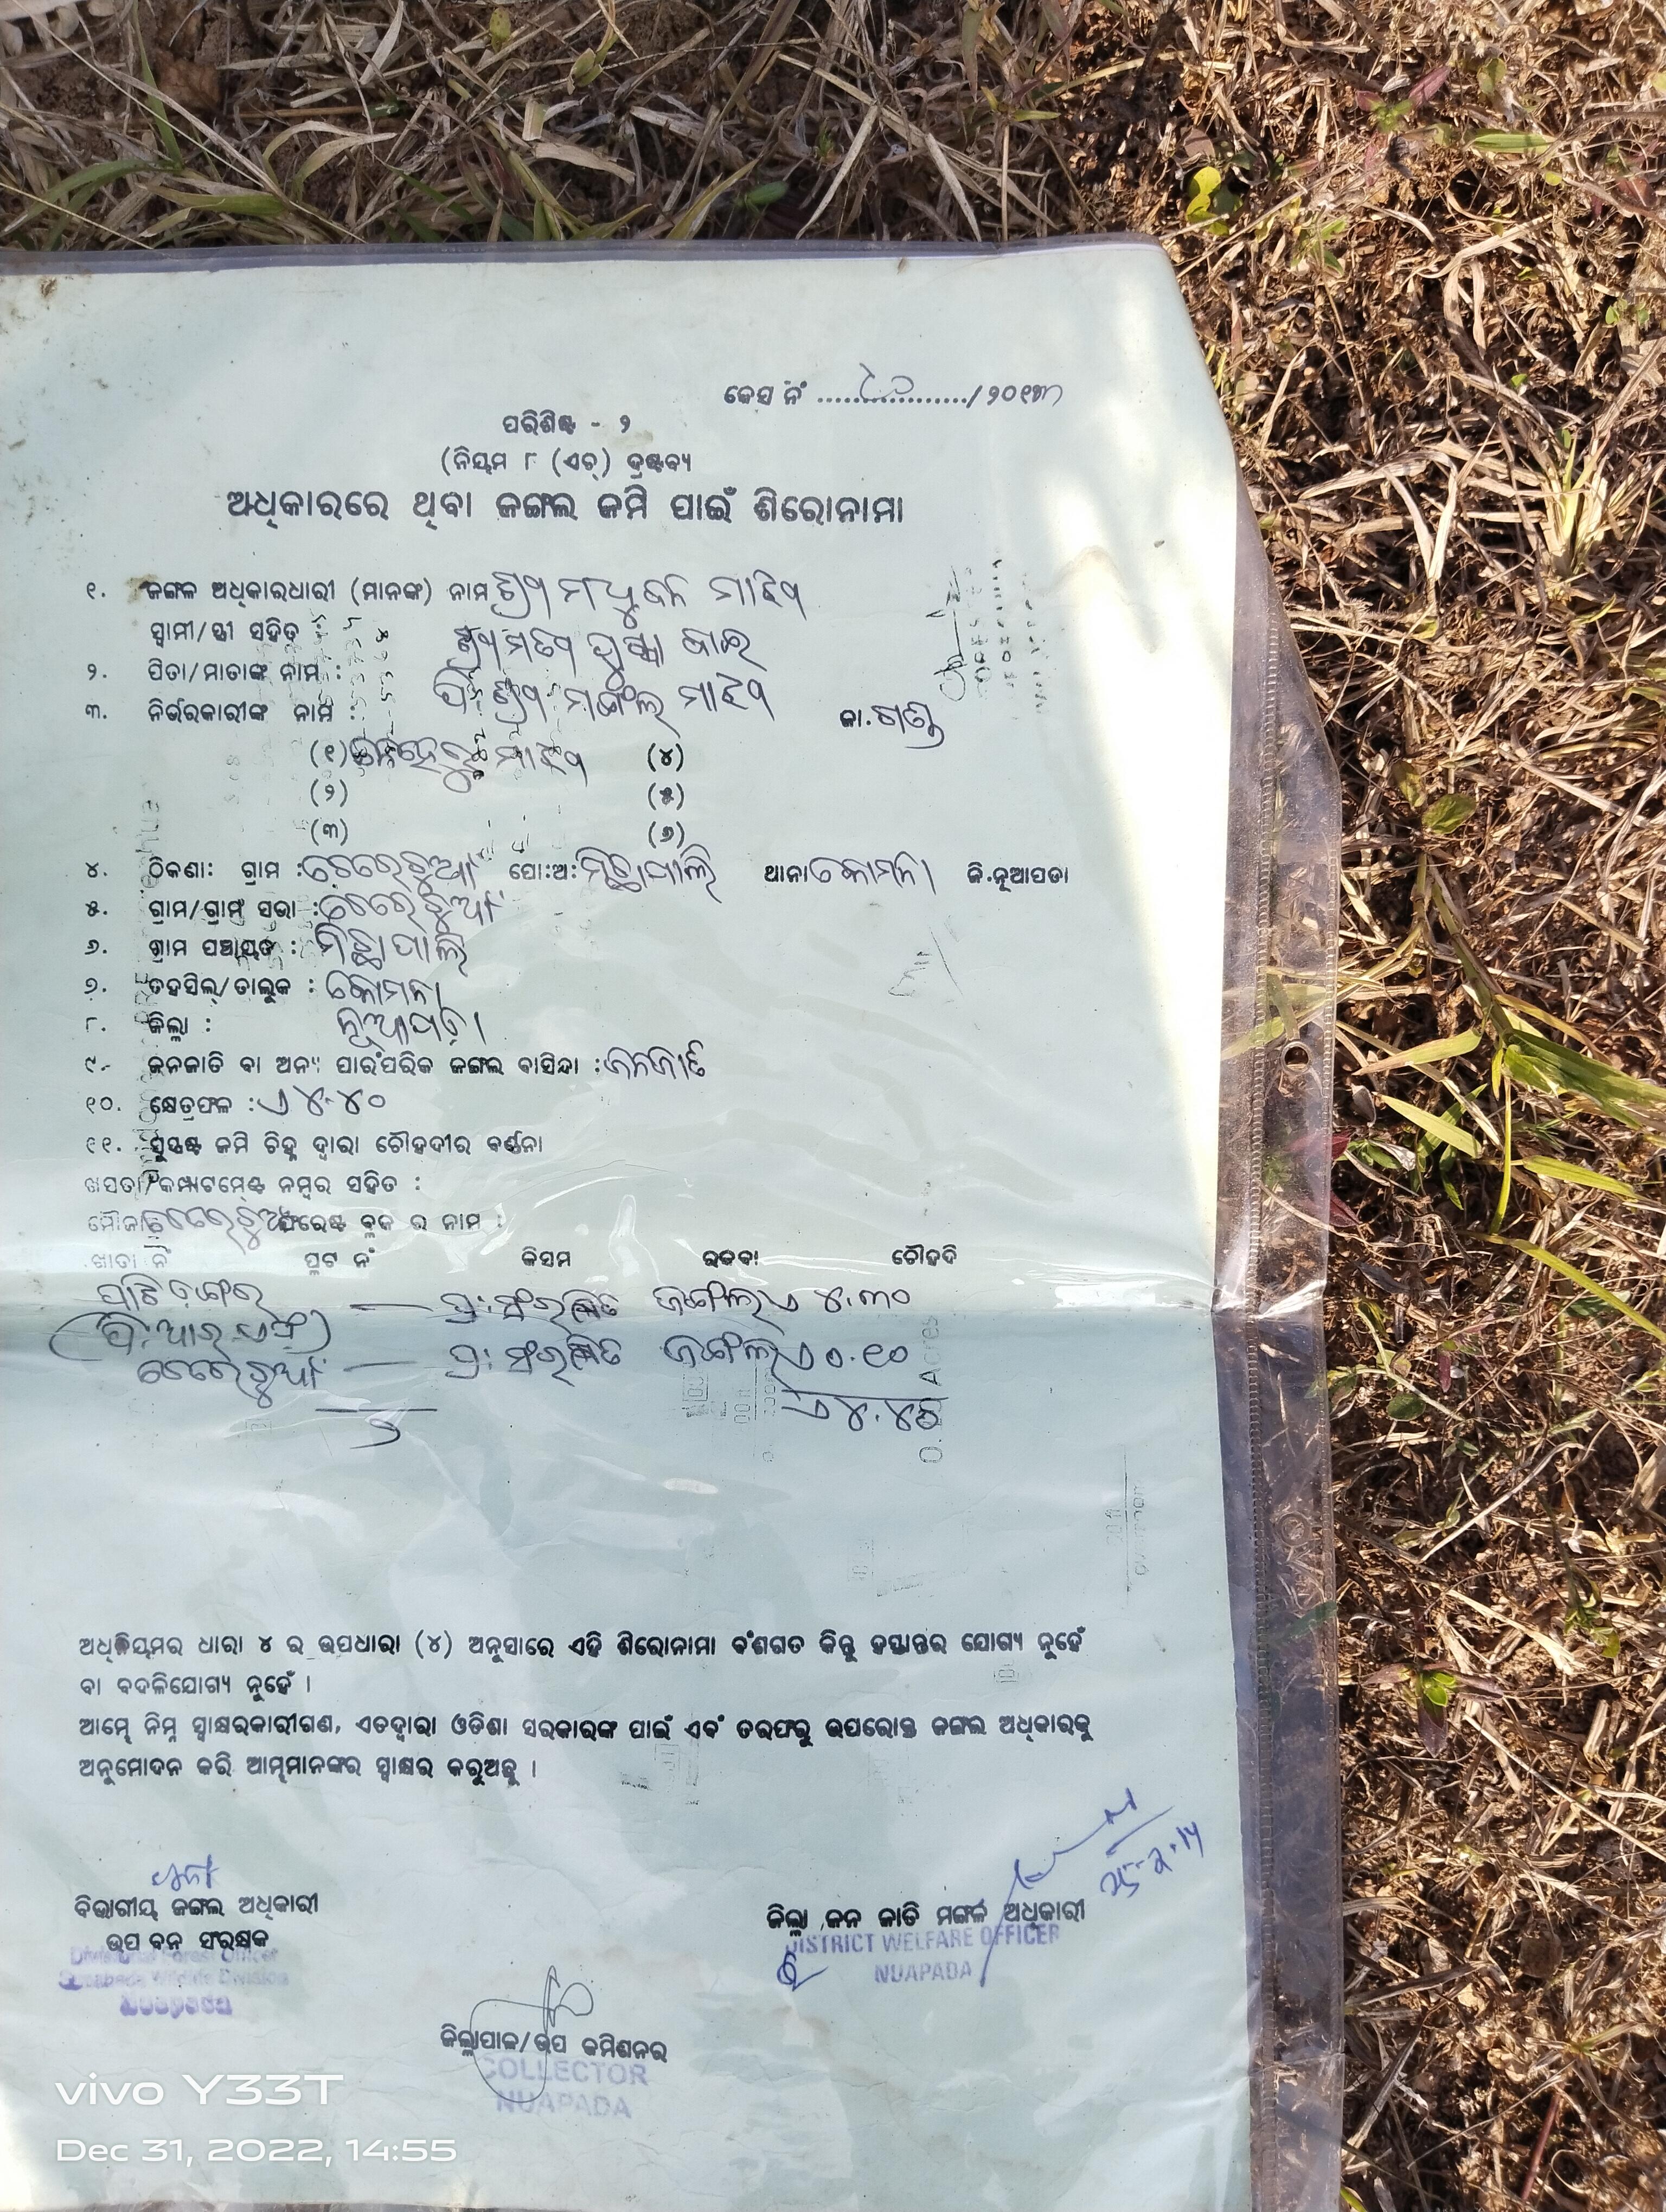 କେସ ନଂ ................./୨୦୧୩
ପରିଶିଷ୍ଟ - ୨
(ନିୟମ ୮ (ଏଚ୍) ଦ୍ରଷ୍ଟବ୍ୟ
ଅଧିକାରରେ ଥିବା ଜଙ୍ଗଲ ଜମି ପାଇଁ ଶିରୋନାମା
୧. ଜଙ୍ଗଲ ଅଧିକାରଧାରୀ (ମାନଙ୍କ) ନାମ ଶ୍ରୀ ମଧୁଜନ ମାଝୀ
ସ୍ୱାମୀ/ସ୍ତ୍ରୀ ସହିତ : ଶ୍ରୀମତୀ ପୁଷ୍ପା ବାଇ
୨. ପିତା/ମାତାଙ୍କ ନାମ : ପି: ଶ୍ରୀ ମଙ୍ଗଲ ମାଝୀ
୩. ନିର୍ଭରକାରୀଙ୍କ ନାମ : ଜା. ଗଣ୍ଡ
(୧) ମାଝୀ (୪)
(୨) (୫)
(୩) (୬)
୪. ଠିକଣା: ଗ୍ରାମ : ଢେରେଚୁଆଁ ପୋ:ଅ: ମିଛାପାଲି ଥାନା କୋମନା ଜି.ନୂଆପଡା
୫. ଗ୍ରାମ/ଗ୍ରାମ ସଭା : ଢେରେଚୁଆଁ
୬. ଗ୍ରାମ ପଞ୍ଚାୟତ : ମିଛାପାଲି
୭. ତହସିଲ୍/ତାଲୁକ : କୋମନା
୮. ଜିଲ୍ଲା : ନୂଆପଡ଼ା
୯. ଜନଜାତି ବା ଅନ୍ୟ ପାରଂପରିକ ଜଙ୍ଗଲ ବାସିନ୍ଦା : ଜନଜାତି
୧୦. କ୍ଷେତ୍ରଫଳ : ଏ ୪.୪୦
୧୧. ସୁସ୍ପଷ୍ଟ ଜମି ଚିହ୍ନ ଦ୍ୱାରା ଚୌହଦୀର ବର୍ଣ୍ଣନା
ଖସଡା/କମ୍ପାର୍ଟମେଣ୍ଟ ନମ୍ବର ସହିତ :
ମୌଜା ଢେରେଚୁଆଁ ଫରେଷ୍ଟ ବ୍ଲକ ର ନାମ :
ଖାତା ନଂ ପ୍ଲଟ ନଂ କିସମ ରକବା ଚୌହଦି
— ପ୍ର: ସଂରକ୍ଷିତ ଜଙ୍ଗଲ ଏ ୪.୩୦
(ପି.ଆର୍.ଏଫ୍)
ଢେରେଚୁଆଁ — ପ୍ର: ସଂରକ୍ଷିତ ଜଙ୍ଗଲ ଏ ୦.୧୦
ଏ ୪.୪୦
ଅଧିନିୟମର ଧାରା ୪ ର ଉପଧାରା (୪) ଅନୁସାରେ ଏହି ଶିରୋନାମା ବଂଶଗତ କିନ୍ତୁ ହସ୍ତାନ୍ତର ଯୋଗ୍ୟ ନୁହେଁ
ବା ବଦଳିଯୋଗ୍ୟ ନୁହେଁ ।
ଆମ୍ଭେ ନିମ୍ନ ସ୍ୱାକ୍ଷରକାରୀଗଣ, ଏତଦ୍ୱାରା ଓଡିଶା ସରକାରଙ୍କ ପାଇଁ ଏବଂ ତରଫରୁ ଉପରୋକ୍ତ ଜଙ୍ଗଲ ଅଧିକାରକୁ
ଅନୁମୋଦନ କରି ଆମ୍ଭମାନଙ୍କର ସ୍ୱାକ୍ଷର କରୁଅଛୁ ।
25-2-14
ବିଭାଗୀୟ ଜଙ୍ଗଲ ଅଧିକାରୀ
ଉପ ବନ ସଂରକ୍ଷକ
Divisional Forest Officer
Sunabeda Wildlife Division
Nuapada
ଜିଲ୍ଲା ଜନ ଜାତି ମଙ୍ଗଳ ଅଧିକାରୀ
DISTRICT WELFARE OFFICER
NUAPADA
ଜିଲ୍ଲାପାଳ/ଉପ କମିଶନର
COLLECTOR
NUAPADA
vivo Y33T
Dec 31, 2022, 14:55